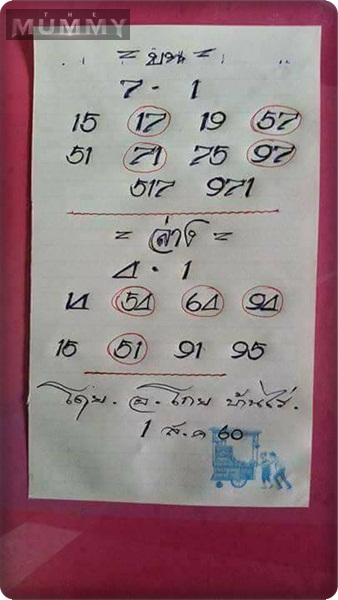 THE
MUMMY
= บน =
7 - 1
15 17 19 57
51 71 75 97
517 971
= ล่าง =
4 - 1
14 54 64 94
15 51 91 95
โดย. อ. โกย บ้านไร่.
1 ส.ค 60